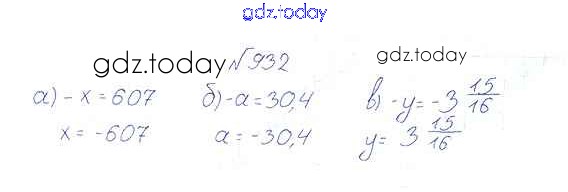 gdz.today
gdz.today №932 gdz.today
а) -x = 607 б) -a = 30,4 в) -y = -3 15/16
x = -607 a = -30,4 y = 3 15/16